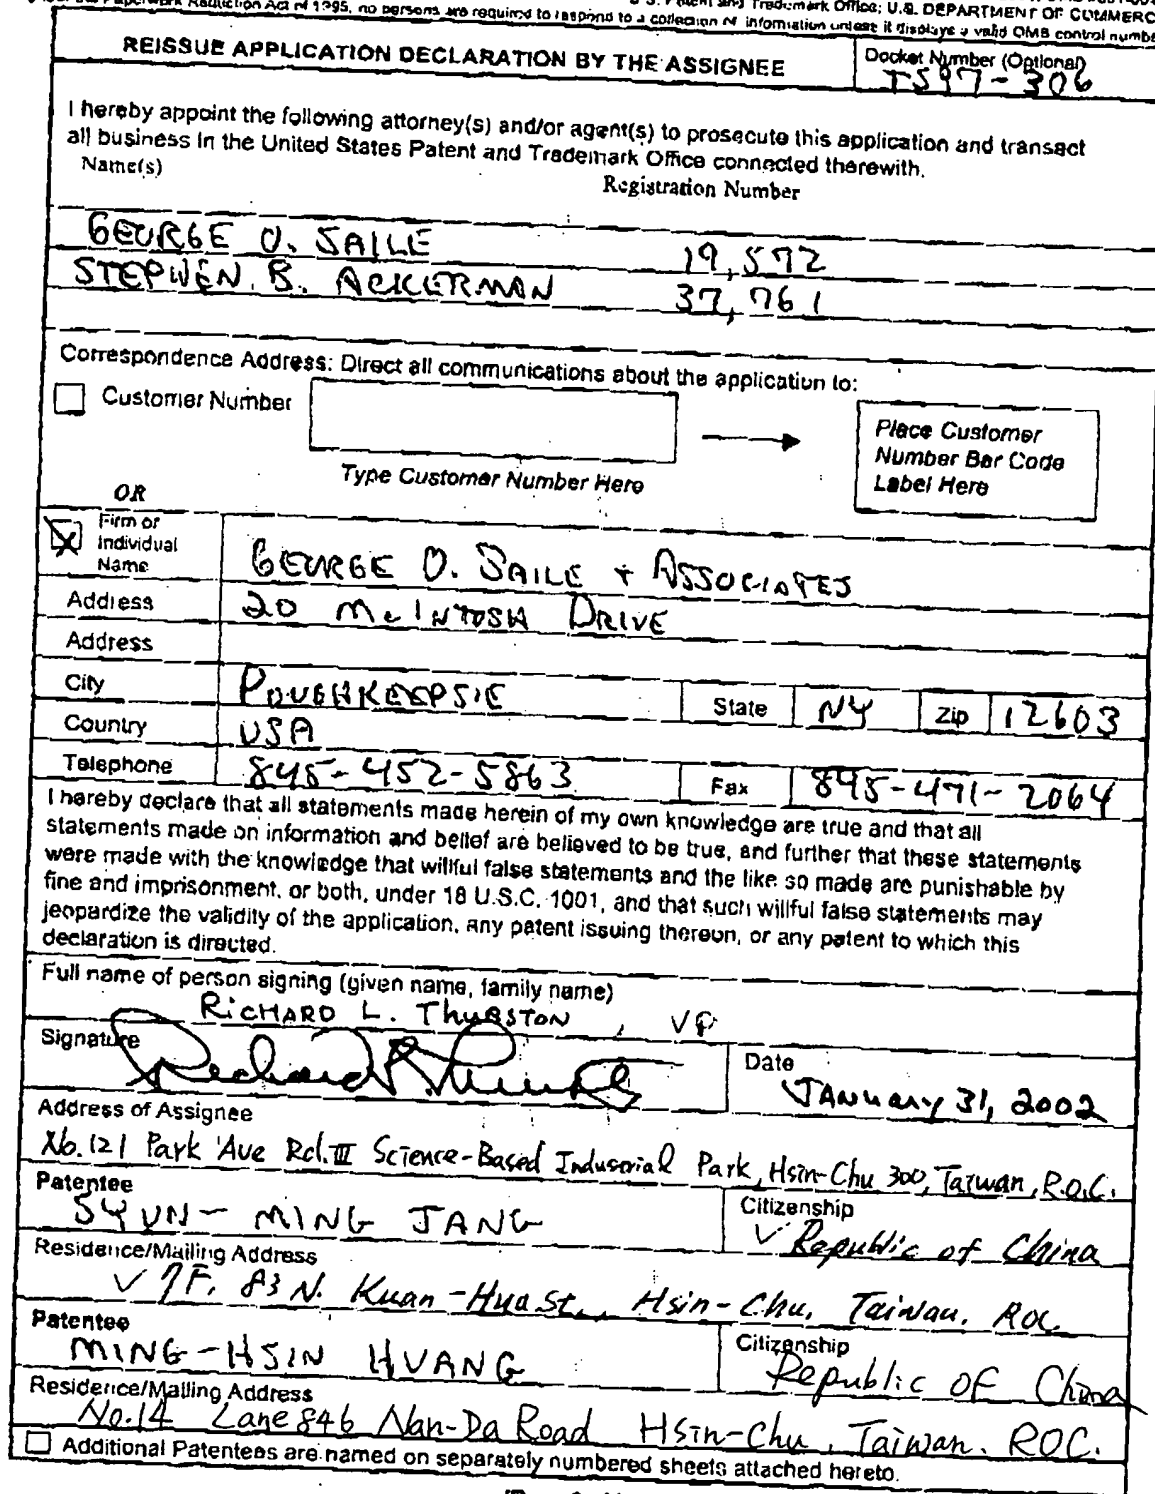 Reduction Act of 1995, no persons are required to respond to a collection of information unless it displays a valid OMB control
Patent and Trademark Office; U.S. DEPARTMENT OF
REISSUE APPLICATION DECLARATION BY THE ASSIGNEE
Docket Number (Optional)
TS97-306
I hereby appoint the following attorney(s) and/or agent(s) to prosecute this application and transact
all business in the United States Patent and Trademark Office connected therewith.
Name(s)
Registration Number
GEORGE O. SAILE 19,572
STEPHEN. B. ACKERMAN 37,761
Correspondence Address: Direct all communications about the application to:
Customer Number
Type Customer Number Here
Place Customer
Number Bar Code
Label Here
OR
Firm or
Individual
Name
GEORGE O. SAILE + ASSOCIATES
Address 20 McINTOSH DRIVE
Address
City POUGHKEEPSIE State NY Zip 12603
Country USA
Telephone 845-452-5863 Fax 845-471-2064
I hereby declare that all statements made herein of my own knowledge are true and that all
statements made on information and belief are believed to be true, and further that these statements
were made with the knowledge that willful false statements and the like so made are punishable by
fine and imprisonment, or both, under 18 U.S.C. 1001, and that such willful false statements may
jeopardize the validity of the application, any patent issuing thereon, or any patent to which this
declaration is directed.
Full name of person signing (given name, family name)
RICHARD L. THURSTON, VP
Signature
Date
JANUARY 31, 2002
Address of Assignee
No. 121 Park Ave Rd. III Science-Based Indusorial Park, Hsin-Chu 300, Taiwan, R.O.C.
Patentee
SYUN-MING JANG
Citizenship
✓ Republic of China
Residence/Mailing Address
✓ 7F, 83 N. Kuan-Hua St., Hsin-Chu, Taiwan, ROC
Patentee
MING-HSIN HUANG
Citizenship
Republic of China
Residence/Mailing Address
No.14 Lane 846 Nan-Da Road Hsin-Chu, Taiwan. ROC.
Additional Patentees are named on separately numbered sheets attached hereto.